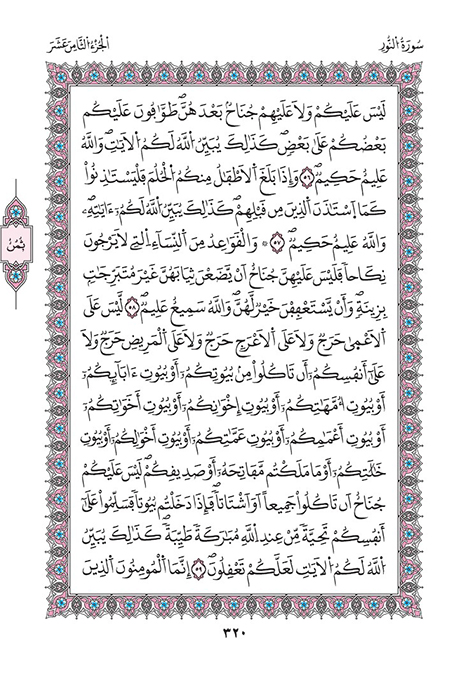 سُورَةُ النُّورِ
الجُزْءُ الثَّامِنَ عَشَرَ
لَيْسَ عَلَيْكُمْ وَلَا عَلَيْهِمْ جُنَاحٌ بَعْدَهُنَّ طَوَّافُونَ عَلَيْكُم
بَعْضُكُمْ عَلَىٰ بَعْضٍ كَذَٰلِكَ يُبَيِّنُ اللَّهُ لَكُمُ الْآيَاتِ وَاللَّهُ
عَلِيمٌ حَكِيمٌ ٥٦ وَإِذَا بَلَغَ الْأَطْفَالُ مِنكُمُ الْحُلُمَ فَلْيَسْتَاذِنُوا
كَمَا اسْتَاذَنَ الَّذِينَ مِن قَبْلِهِمْ كَذَٰلِكَ يُبَيِّنُ اللَّهُ لَكُمُ ءَايَاتِهِ
وَاللَّهُ عَلِيمٌ حَكِيمٌ ٥٧ وَالْقَوَاعِدُ مِنَ النِّسَاءِ الَّتِي لَا يَرْجُونَ
نِكَاحًا فَلَيْسَ عَلَيْهِنَّ جُنَاحٌ أَن يَضَعْنَ ثِيَابَهُنَّ غَيْرَ مُتَبَرِّجَاتٍ
ثُمُنُ
بِزِينَةٍ وَأَن يَسْتَعْفِفْنَ خَيْرٌ لَّهُنَّ وَاللَّهُ سَمِيعٌ عَلِيمٌ ٥٨ لَّيْسَ عَلَى
الْأَعْمَىٰ حَرَجٌ وَلَا عَلَى الْأَعْرَجِ حَرَجٌ وَلَا عَلَى الْمَرِيضِ حَرَجٌ وَلَا
عَلَىٰ أَنفُسِكُمُ أَن تَاكُلُوا مِنْ بُيُوتِكُمُ أَوْ بُيُوتِ ءَابَائِكُمُ
أَوْ بُيُوتِ أُمَّهَاتِكُمُ أَوْ بُيُوتِ إِخْوَانِكُمُ أَوْ بُيُوتِ أَخَوَاتِكُمُ
أَوْ بُيُوتِ أَعْمَامِكُمُ أَوْ بُيُوتِ عَمَّاتِكُمُ أَوْ بُيُوتِ أَخْوَالِكُمُ أَوْ بُيُوتِ
خَالَاتِكُمُ أَوْ مَا مَلَكْتُم مَّفَاتِحَهُ أَوْ صَدِيقِكُمْ لَيْسَ عَلَيْكُمْ
جُنَاحٌ أَن تَاكُلُوا جَمِيعًا أَوْ أَشْتَاتًا فَإِذَا دَخَلْتُم بُيُوتًا فَسَلِّمُوا عَلَىٰ
أَنفُسِكُمْ تَحِيَّةً مِّنْ عِندِ اللَّهِ مُبَارَكَةً طَيِّبَةً كَذَٰلِكَ يُبَيِّنُ
اللَّهُ لَكُمُ الْآيَاتِ لَعَلَّكُمْ تَعْقِلُونَ ٥٩ إِنَّمَا الْمُومِنُونَ الَّذِينَ
٣٢٠